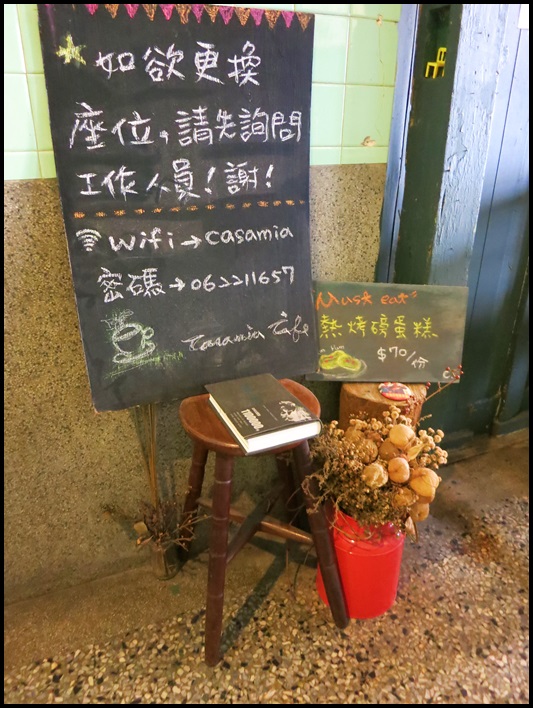 如欲更換
座位，請先詢問
工作人員！謝！
wifi→casamia
密碼→062211657
Casamia Cafe
Must eat
熱烤磅蛋糕
$70/份